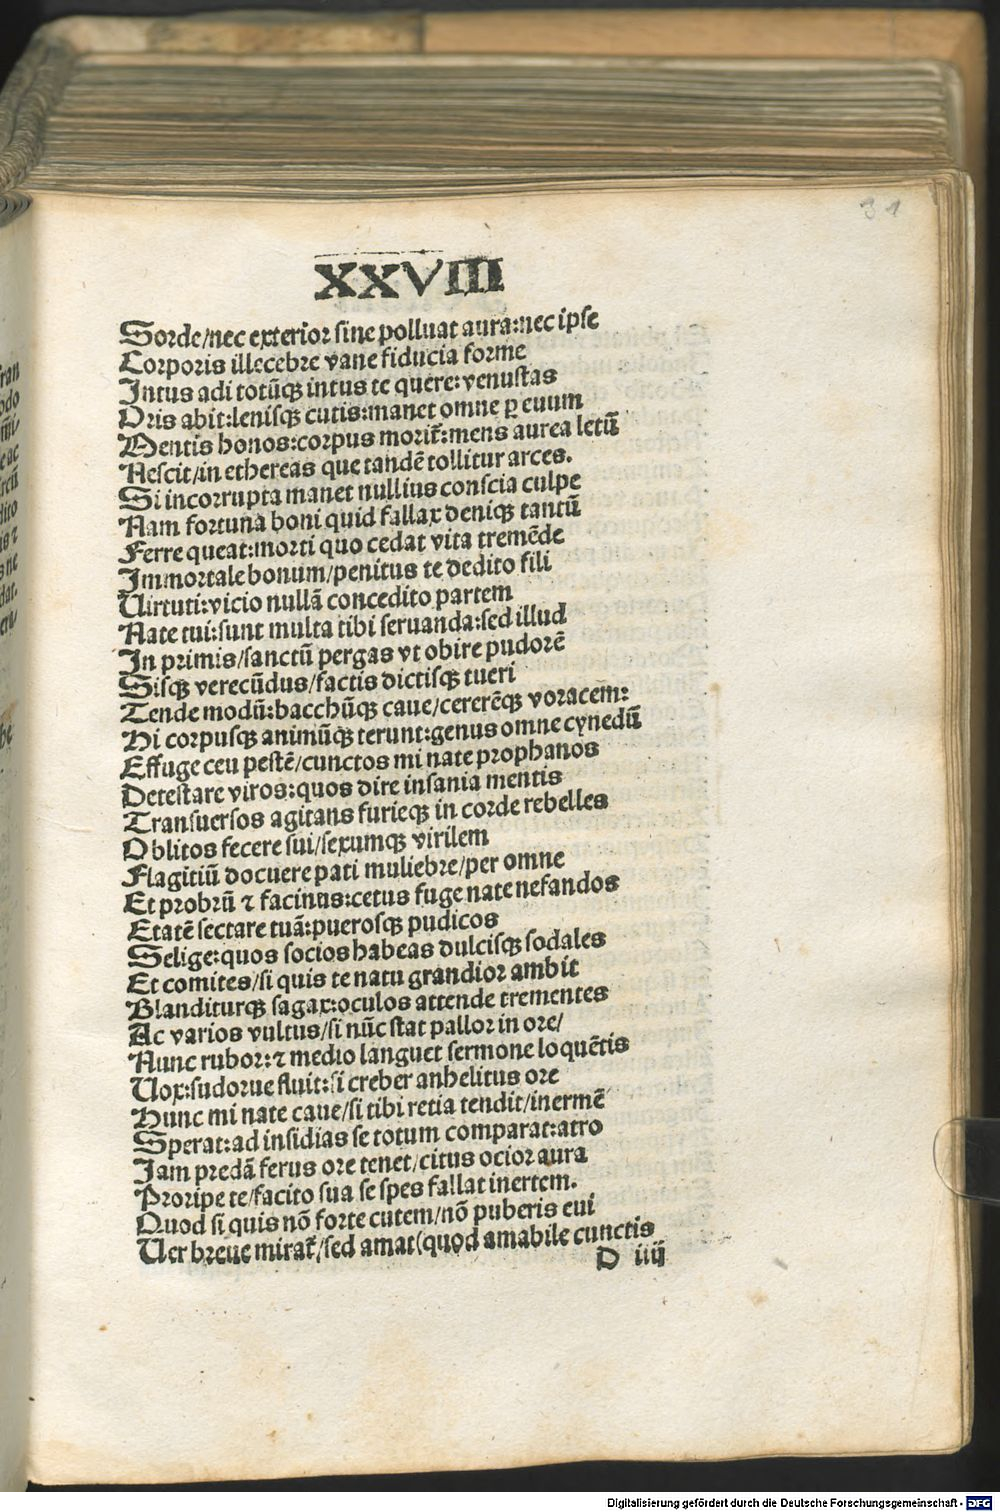 31
XXVIII
Sorde/nec exterior sine polluat aura:nec ipse
Corporis illecebre vane fiducia forme
Intus adi totũqꝫ intus te quere: venustas
Oris abit:lenisqꝫ cutis:manet omne ꝑ euum
Mentis honos:corpus morit᷑:mens aurea letũ
Nescit/in ethereas que tandẽ tollitur arces.
Si incorrupta manet nullius conscia culpe
Nam fortuna boni quid fallax deniqꝫ tantũ
Ferre queat:morti quo cedat vita tremẽde
Immortale bonum/penitus te dedito fili
Uirtuti:vicio nullã concedito partem
Nate tui:sunt multa tibi seruanda:sed illud
In primis/sanctũ pergas vt obire pudorẽ
Sisqꝫ verecũdus/factis dictisqꝫ tueri
Tende modũ:bacchũqꝫ caue/cererẽqꝫ voracem:
Hi corpusqꝫ animũqꝫ terunt:genus omne cynedũ
Effuge ceu pestẽ/cunctos mi nate prophanos
Detestare viros:quos dire insania mentis
Transuersos agitans furieqꝫ in corde rebelles
Oblitos fecere sui/sexumqꝫ virilem
Flagitiũ docuere pati muliebre/per omne
Et probrũ ⁊ facinus:cetus fuge nate nefandos
Etatẽ sectare tuã:puerosqꝫ pudicos
Selige:quos socios habeas dulcisqꝫ sodales
Et comites/si quis te natu grandior ambit
Blanditurqꝫ sagax:oculos attende trementes
Ac varios vultus/si nũc stat pallor in ore/
Nunc rubor:⁊ medio languet sermone loquẽtis
Uox:sudorue fluit:si creber anhelitus ore
Hunc mi nate caue/si tibi retia tendit/inermẽ
Sperat:ad insidias se totum comparat:atro
Jam predã ferus ore tenet/citus ocior aura
Proripe te/facito sua se spes fallat inertem.
Quod si quis nõ forte cutem/nõ puberis eui
Uer breue mirat᷑/sed amat(quod amabile cunctis
D iiij
Digitalisierung gefördert durch die Deutsche Forschungsgemeinschaft - DFG